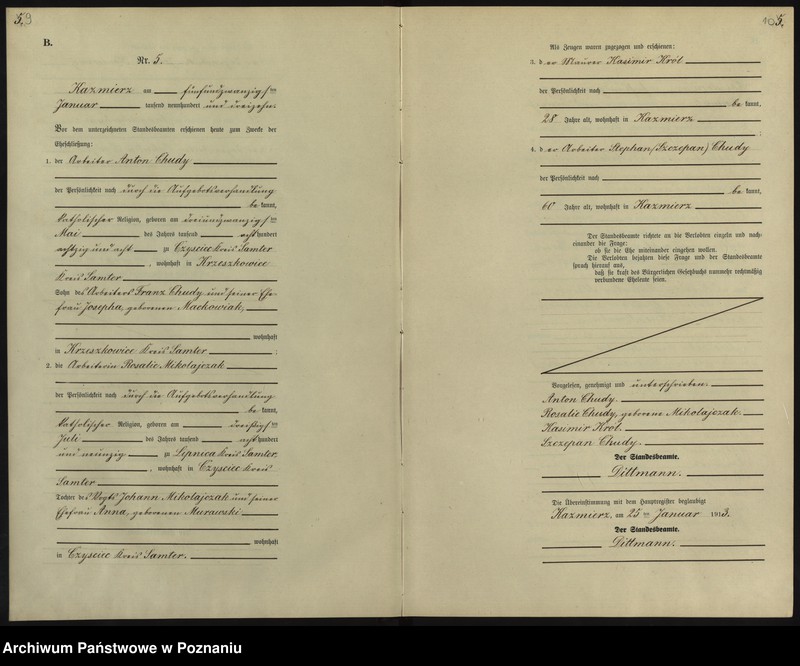 5.9
B.
Nr. 5.
Kazmierz am fünfundzwanzigsten
Januar tausend neunhundert und dreizehn.
Vor dem unterzeichneten Standesbeamten erschienen heute zum Zwecke der
Eheschließung:
1. der Arbeiter Anton Chudy
der Persönlichkeit nach durch die Aufgebotsverhandlung
be kannt,
katholischer Religion, geboren am dreiundzwanzigsten
Mai des Jahres tausend acht hundert
achtzig und acht zu Czyściec Kreis Samter
, wohnhaft in Krzeszkowice
Kreis Samter
Sohn des Arbeiters Franz Chudy und seiner Ehe-
frau Josepha, geborenen Mackowiak,
wohnhaft
in Krzeszkowice Kreis Samter ;
2. die Arbeiterin Rosalie Mikolajczak
der Persönlichkeit nach durch die Aufgebotsverhandlung
be kannt,
katholischer Religion, geboren am dreißigsten
Juli des Jahres tausend acht hundert
und neunzig zu Lipnica Kreis Samter,
, wohnhaft in Czyściec Kreis
Samter
Tochter des Vogts Johann Mikolajczak und seiner
Ehefrau Anna, geborenen Murawski
wohnhaft
in Czyściec Kreis Samter.
10 5.
Als Zeugen waren zugezogen und erschienen:
3. der Maurer Kasimir Król
der Persönlichkeit nach
be kannt,
28 Jahre alt, wohnhaft in Kazmierz
;
4. der Arbeiter Stephan (Szczepan) Chudy
der Persönlichkeit nach
be kannt,
60 Jahre alt, wohnhaft in Kazmierz
Der Standesbeamte richtete an die Verlobten einzeln und nach-
einander die Frage:
ob sie die Ehe miteinander eingehen wollen.
Die Verlobten bejahten diese Frage und der Standesbeamte
sprach hierauf aus,
daß sie kraft des Bürgerlichen Gesetzbuchs nunmehr rechtmäßig
verbundene Eheleute seien.
Vorgelesen, genehmigt und unterschrieben.
Anton Chudy.
Rosalie Chudy, geborene Mikolajczak.
Kasimir Król.
Szczepan Chudy.
Der Standesbeamte.
Dittmann.
Die Übereinstimmung mit dem Hauptregister beglaubigt
Kazmierz, am 25 ten Januar 1913.
Der Standesbeamte.
Dittmann.
Archiwum Państwowe w Poznaniu